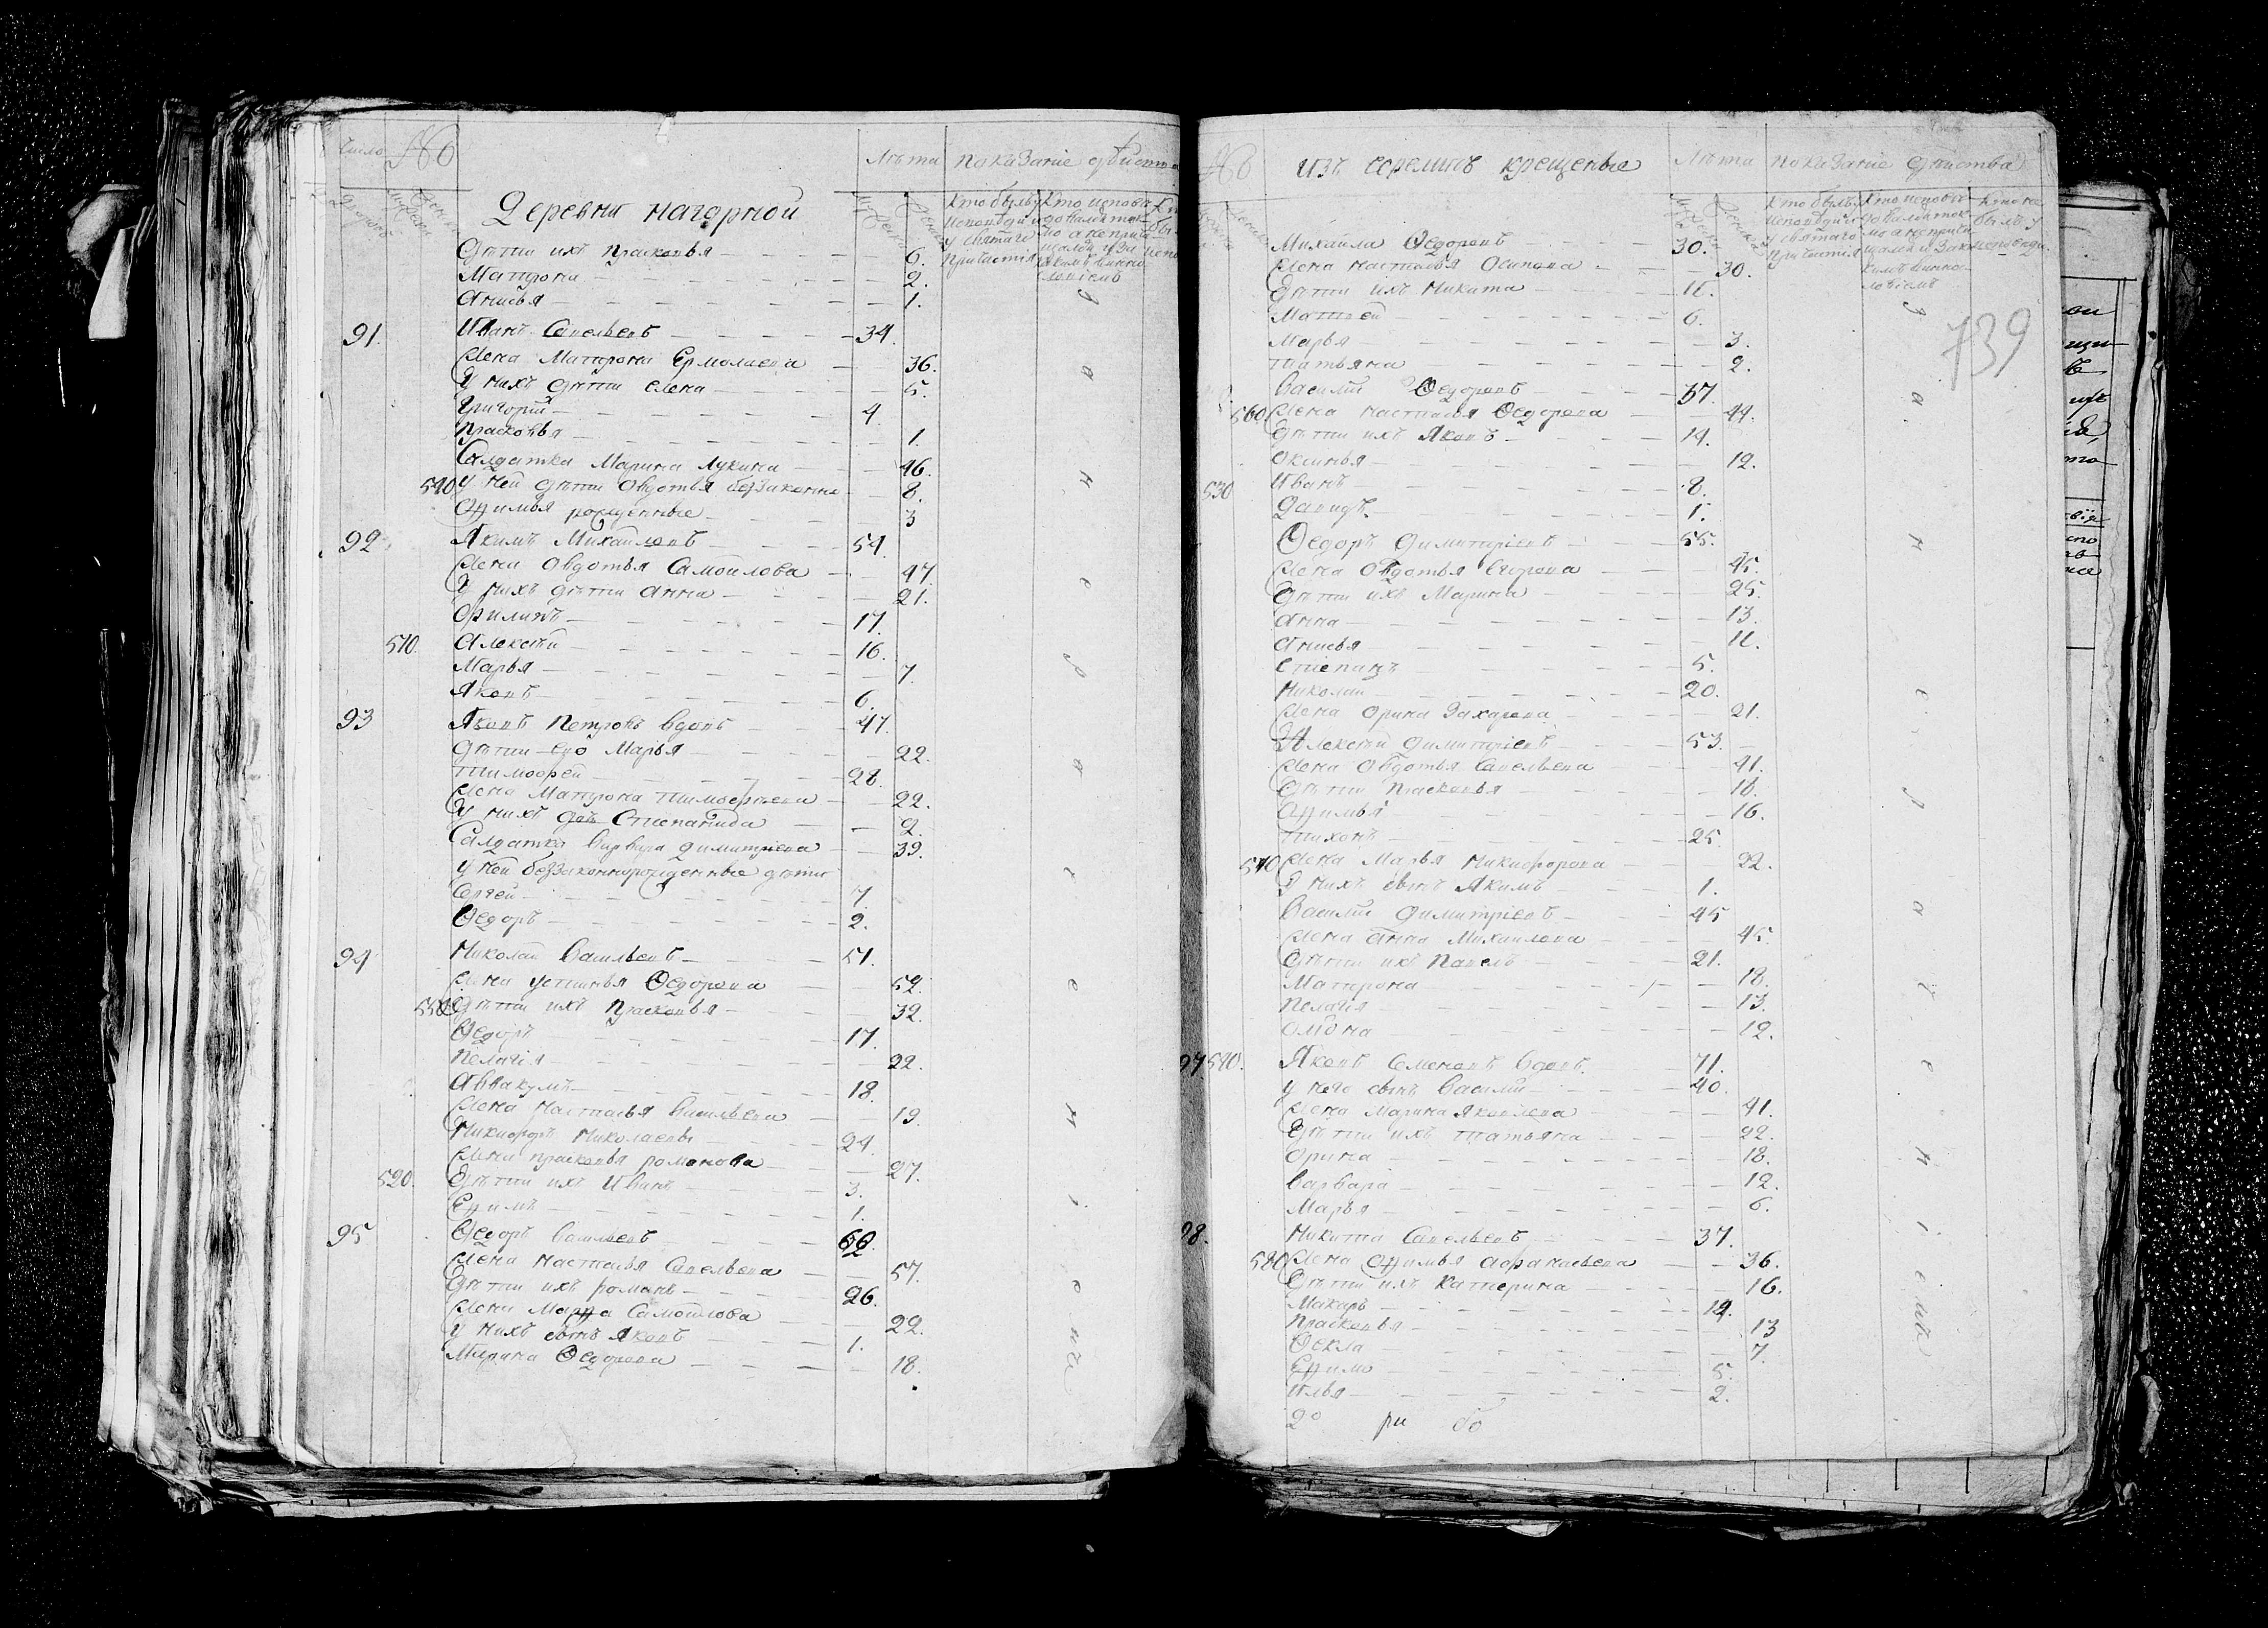 Число № Лѣта показание дѣиства
дворовъ мужеска женска
Деревни нагорной
мужеска женска
Кто былъ у исповѣди и у святаго причастия
Кто исповѣдовался токмо а не причащался и за какимъ виннословіемъ
Дѣти ихъ Прасковья 6.
Матрона 2.
Анисья 1.
91. Иванъ Савельевъ 34.
Жена Матрона Ермолаева 36.
У нихъ дѣти Елена 5.
Григорій 4.
Прасковья 1.
Салдатка Марина Лукина 46.
540 У ней дѣти Овдотья беззаконно 8.
Афимья рожденные 3
92. Якимъ Михайловъ 54.
Жена Овдотья Самойлова 47.
У нихъ дѣти Анна 21.
Филипъ 17.
510. Алексѣй 16.
Марья 7.
Яковъ 6.
93 Яковъ Петровъ вдовъ 47.
Дѣти его Марья 22.
Тимофей 28.
Жена Матрона Тимофѣева 22.
У нихъ дѣ Степанида 2.
Салдатка Варвара Димитріева 39.
У ней беззаконнорожденные дѣти
Сергей 7
Ѳедоръ 2.
94 Николай Васильевъ 51.
Жена Устинья Ѳедорова 52.
550 Дѣти ихъ Прасковья 32.
Ѳедоръ 17.
Пелагія 22.
Аввакумъ 18.
Жена Настасья Васильева 19.
Никифоръ Николаевъ 24.
Жена Прасковья Романова 27.
520. Дѣти ихъ Иванъ 3.
Ефимъ 1.
95 Ѳедоръ Васильевъ 62.
Жена Настасья Савельева 57.
Дѣти ихъ Романъ 26.
Жена Марфа Самойлова 22.
У нихъ сынъ Яковъ 1.
Марина Ѳедорова 18.
№ изъ черемисъ крещеные Лѣта показание дѣиства
мужеска женска
Кто былъ у исповѣди и у святаго причастія
Кто исповѣдовался токмо а не причащался и за какимъ виннословіемъ
Кто не былъ у исповѣди
739
Михайла Ѳедоровъ 30.
Жена Настасья Осипова 30.
Дѣти ихъ Никита 11.
Матвей 6.
Марья 3.
Татьяна 2.
Василій Ѳедоровъ 37.
560 Жена Настасья Ѳедорова 44.
Дѣти ихъ Яковъ 14.
Оксинья 12.
530 Иванъ 8.
Давидъ 1.
Ѳедоръ Димитріевъ 55.
Жена Овдотья Егорова 45.
Дѣти ихъ Марина 25.
Анна 13.
Анисья 11.
Степанъ 5.
Николай 20.
Жена Орина Захарова 21.
Алексѣй Димитріевъ 53.
Жена Овдотья Савельева 41.
Дѣти Прасковья 18.
Афимья 16.
Тихонъ 25.
570 Жена Марья Никифорова 22.
У нихъ сынъ Якимъ 1.
Василій Димитріевъ 45
Жена Анна Михайлова 45.
Дѣти ихъ Павелъ 21.
Матрона 18.
Пелагія 13.
12.
97 540. Яковъ Семеновъ вдовъ. 71.
У него сынъ Василій 40.
Жена Марина Яковлева 41.
Дѣти ихъ Татьяна 22.
Орина 18.
Варвара 12.
Марья 6.
98. Никита Савельевъ 37.
580 Жена Афимья Афанасьева 36.
Дѣти ихъ Катерина 16.
Макаръ 14.
Прасковья 13
Ѳекла 7.
Ефимъ 5.
Илья 2.